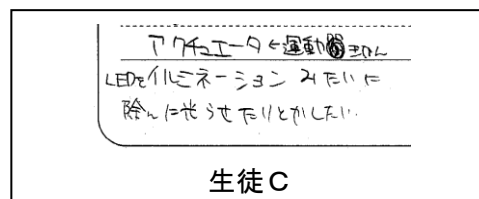 アクチュエータ←運動きかん
LEDをイルミネーションみたいに
除々に光らせたりとかしたい。
生徒C